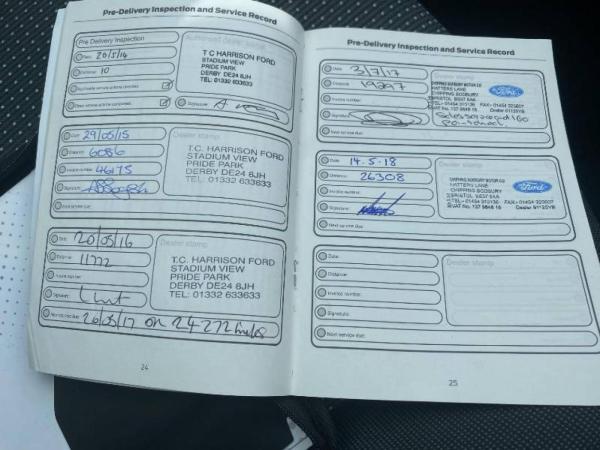 Pre-Delivery Inspection and Service Record
Pre Delivery Inspection
Date: 20/5/14
Distance: 10
T C HARRISON FORD
STADIUM VIEW
PRIDE PARK
DERBY DE24 8JH
TEL: 01332 633633
Signature:
Date: 29/05/15
Dealer stamp
Distance: 6086
Invoice number: 46175
Signature:
Next service due:
T.C. HARRISON FORD
STADIUM VIEW
PRIDE PARK
DERBY DE24 8JH
TEL: 01332 633633
Date: 20/05/16
Dealer stamp
Distance: 11772
Invoice number:
Signature:
Next service due: 20/05/17 on 24272 miles
T.C. HARRISON FORD
STADIUM VIEW
PRIDE PARK
DERBY DE24 8JH
TEL: 01332 633633
24
Pre-Delivery Inspection and Service Record
Date: 3/7/17
Dealer stamp
Distance: 19297
Invoice number:
Signature:
Next service due:
HATTERS LANE
CHIPPING SODBURY
BRISTOL
Ford
Date: 14.5.18
Distance: 26308
Invoice number:
Signature:
Next service due:
CHIPPING SODBURY MOTOR CO
HATTERS LANE
CHIPPING SODBURY
BRISTOL
Ford
Date:
Dealer stamp
Distance:
Invoice number:
Signature:
Next service due:
25